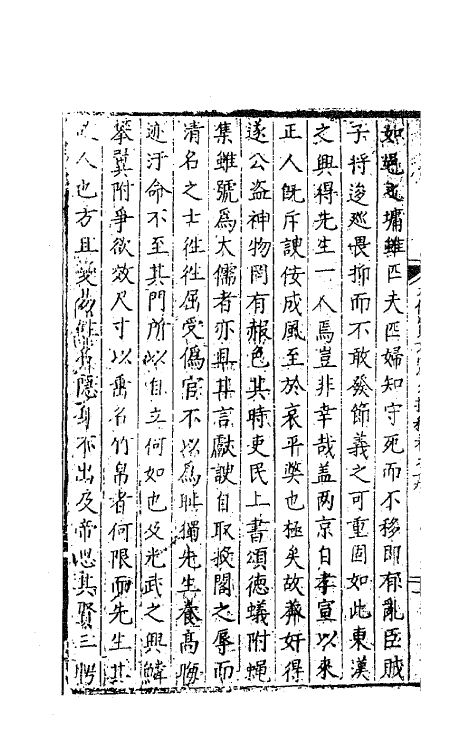 如繩𠃔墉雖匹夫匹婦知守死而不移即有亂臣賊
子將逡廵畏抑而不敢發節義之可重固如此東漢
之興得先生一人焉豈非幸哉盖两京自孝宣以來
正人旣斥諛佞成風至於哀平獘也極矣故莾奸得
遂公盗神物罔有赧色其時吏民上書頌德蟻附蝇
集雖號爲大儒者亦具其言獻諛自取投閣之辱而
清名之士徃徃屈受僞官不以爲耻獨先生養髙晦
迹汙命不至其門所以自立何如也及光武之興鱗
攀翼附爭欲效尺寸以垂名竹帛者何限而先生其
人也方且變姓名隱身不出及帝思其賢三聘